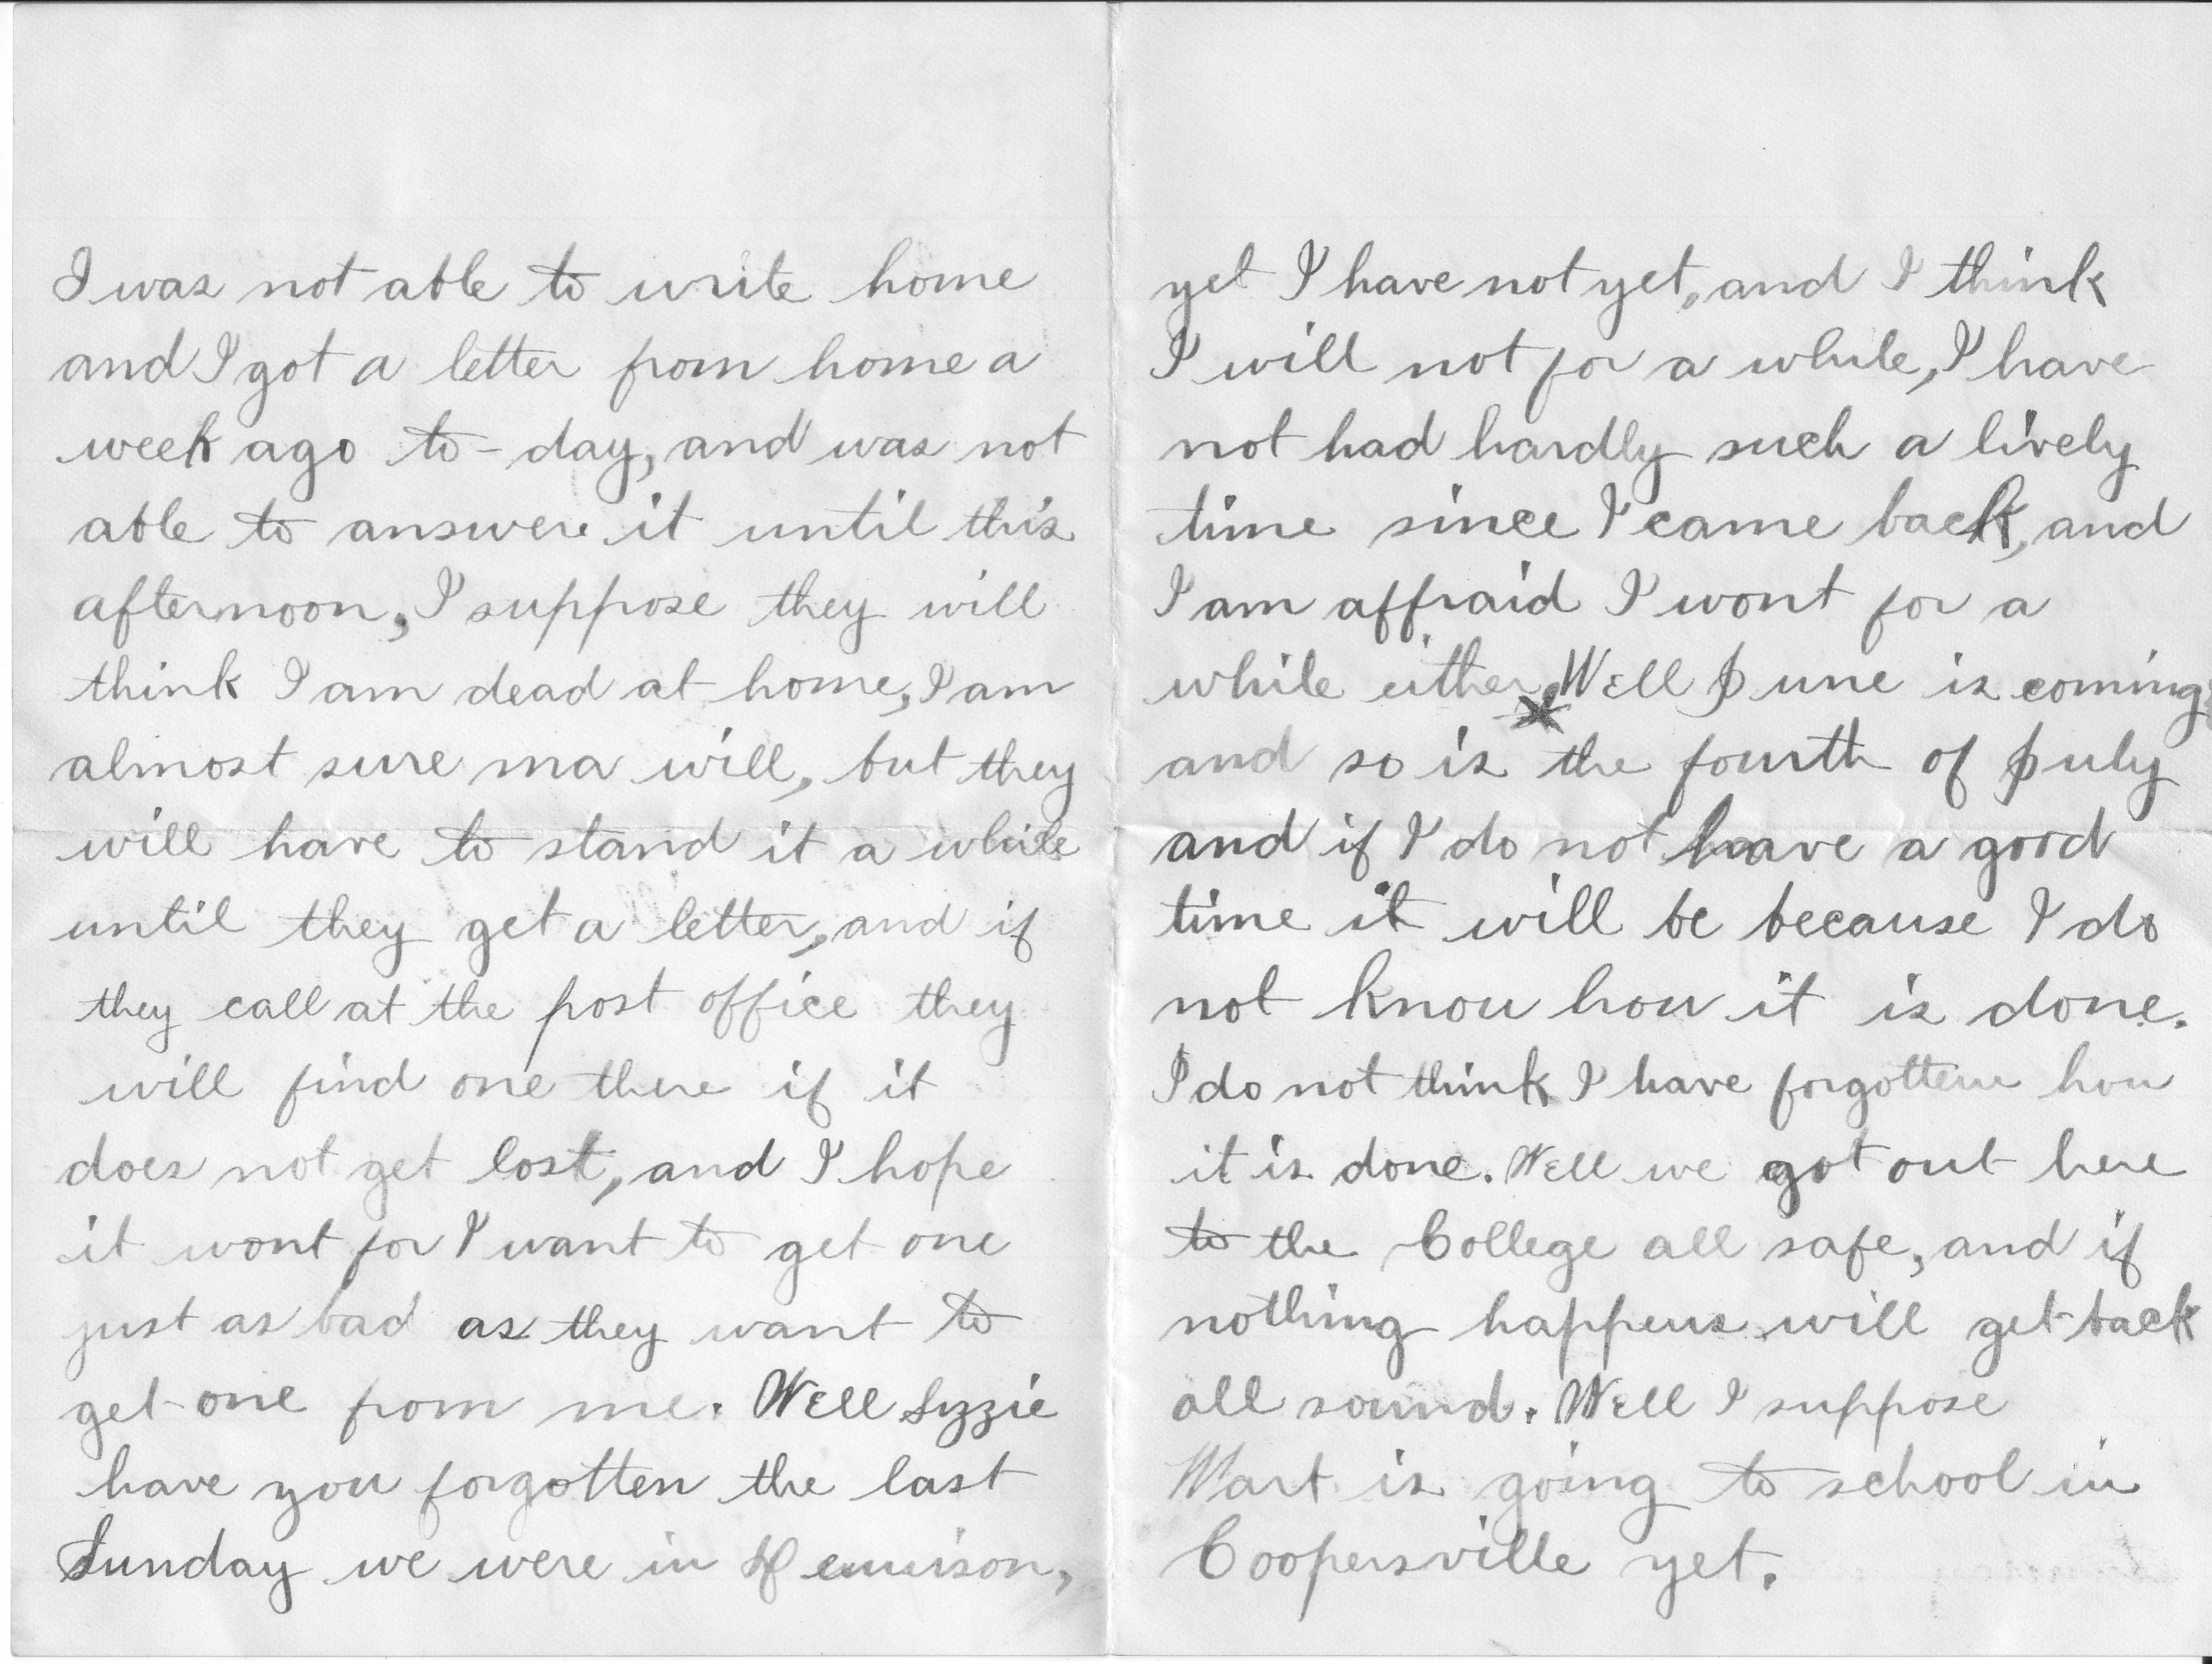 I was not able to write home
and I got a letter from home a
week ago to-day, and was not
able to answere it until this
afternoon, I suppose they will
think I am dead at home, I am
almost sure ma will, but they
will have to stand it a while
until they get a letter, and if
they call at the post office they
will find one there if it
does not get lost, and I hope
it wont for I want to get one
just as bad as they want to
get one from me. Well Lizzie
have you forgotten the last
Sunday we were in Dennison,
yet I have not yet, and I think
I will not for a while, I have
not had hardly such a lively
time since I came back, and
I am affraid I wont for a
while either. Well June is coming
and so is the fourth of July
and if I do not have a good
time it will be because I do
not know how it is done.
I do not think I have forgotten how
it is done. Well we got out here
to the College all safe, and if
nothing happens will get back
all sound. Well I suppose
Mart is going to school in
Coopersville yet.